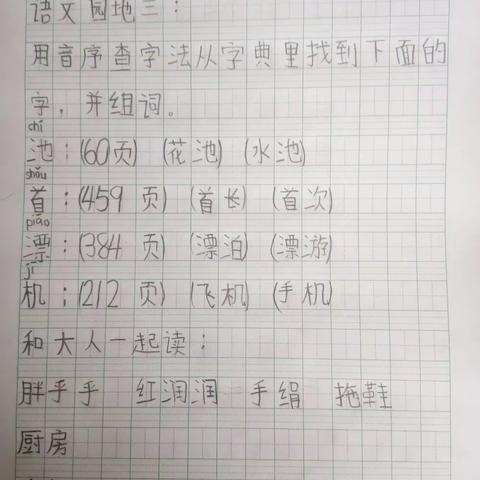 语文园地三：
用音序查字法从字典里找到下面的
字，并组词。
chí
池：(60页) (花池) (水池)
shǒu
首：(459页) (首长) (首次)
piāo
漂：(384页) (漂泊) (漂游)
jī
机：(212页) (飞机) (手机)
和大人一起读：
胖乎乎 红润润 手绢 拖鞋
厨房